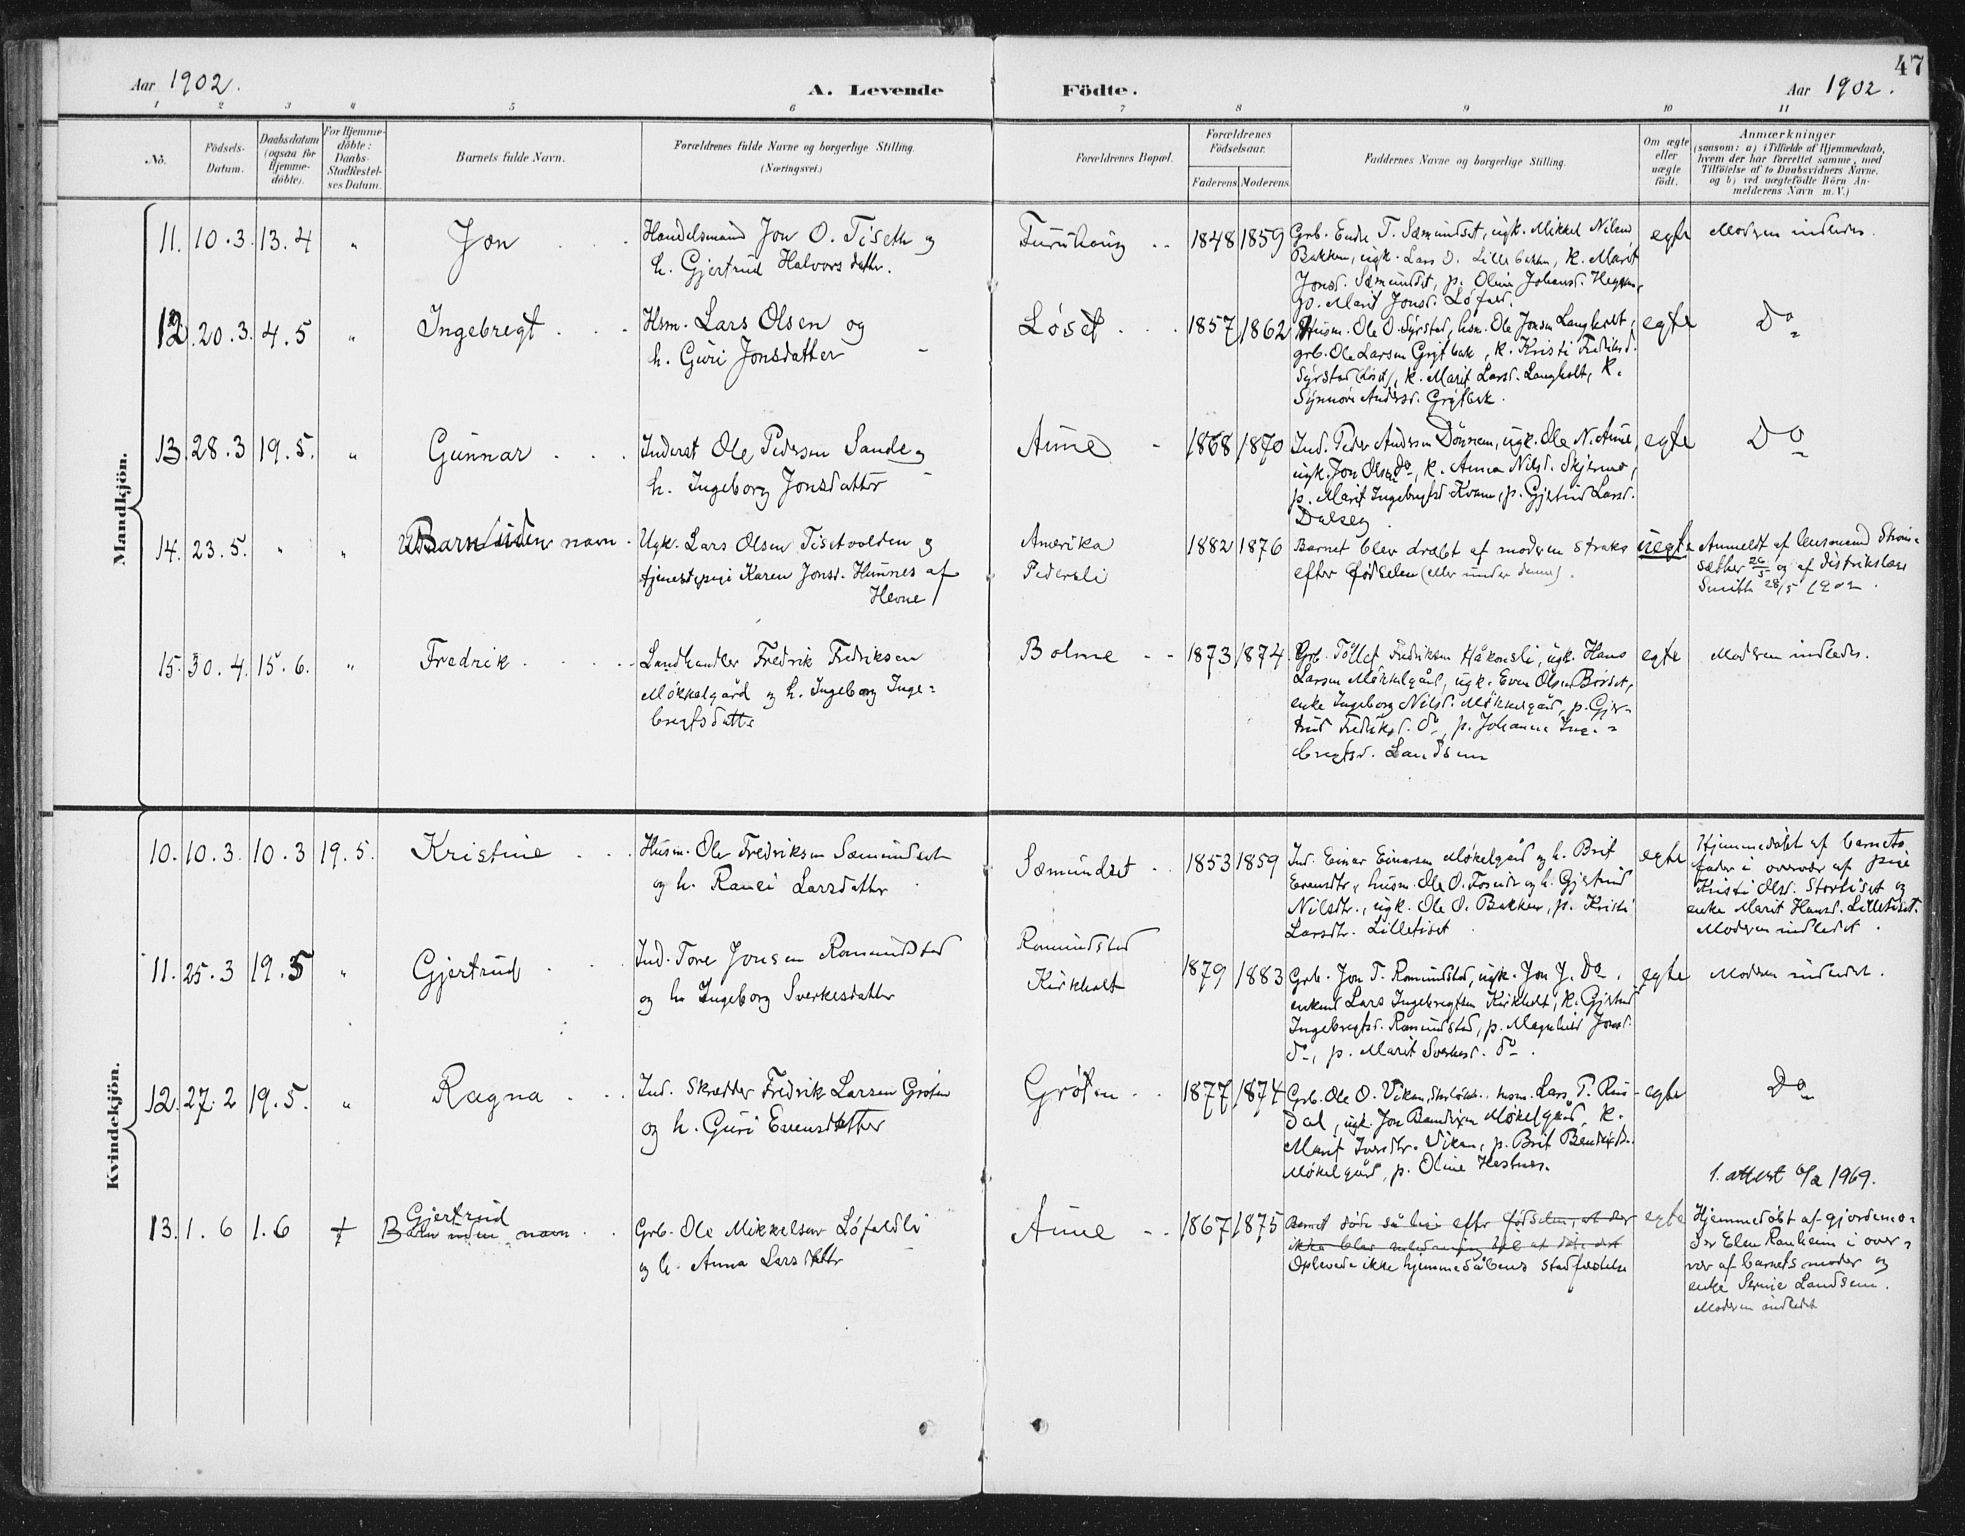 47
Aar 1902.
A. Levende Födte.
Aar 1902.
1 2 3 4 5 6 7 8 9 10 11
No.
Födsels-
Datum.
Daabsdatum
(ogsaa for
Hjemme-
döbte).
For Hjemme-
döbte:
Daabs-
Stadfæstel-
ses Datum.
Barnets fulde Navn.
Forældrenes fulde Navne og borgerlige Stilling.
(Næringsvei.)
Forældrenes Bopæl.
Forældrenes
Födselsaar.
Faderens Moderens
Faddernes Navne og borgerlige Stilling.
Om ægte
eller
uægte
födt.
Anmærkninger
(saasom: a) i Tilfælde af Hjemmedaab,
hvem der har forrettet samme, med
Tilföielse af to Daabsvidners Navne,
og b) ved uægtefödte Börn An-
melderens Navn m. V.)
Mandkjön.
11. 10.3. 13.4 „ Jon
Handelsmand Jon O. Tiseth og
h. Gjertrud Halvorsdatter.
Furuhaug 1848 1859
Grb. Endre T. Sæmundset, ugk. Mikkel Nilsen
Bakken, ugk. Lars O. Lillebakken, k. Marit
Jonsd. Sæmundset, p. Oline Johansd.
p. Marit Jonsd. Løfald.
egte
Moderen indledet.
12. 20.3. 4.5 „ Ingebregt
Hsm. Lars Olsen og
h. Guri Jonsdatter
Løset 1857 1862
Husm. Ole O. Syrstad, hsm. Ole Jonsen Langholt,
grb. Ole Larsen Grytbak, k. Kristi Fredriksd.
Syrstad (Løset), k. Marit Larsd. Langholt, k.
Synnøve Andersd. Grytbak.
egte
Do
13. 28.3 19.5. „ Gunnar
Inderst Ole Pedersen Sande og
h. Ingeborg Jonsdatter
Aune 1868 1870
Ind. Peder Andersen Dönnem, ugk. Ole N. Aune,
ugk. Jon Olsen do, k. Anna Nilsd. Skjermo,
p. Marit Ingebregtsd. Kvam, p. Gjertrud Larsd.
Dalseg.
egte
Do
14. 23.5. „ „ Barn uden navn
Ugk. Lars Olsen Tisetvolden og
tjenestepige Karen Jonsd. Hunnes af
Hevne
Amerika
Pedersli
1882 1876
Barnet blev dræbt af moderen straks
efter fødselen (eller under denne).
uegte
Anmeldt af lensmand Strøm-
sæther 26/5 og af distriktslæge
Smith 28/5 1902.
15. 30.4. 15.6. „ Fredrik
Landhandler Fredrik Fredriksen
Møkkelgård og h. Ingeborg Inge-
bregtsdatter
Bolme 1873 1874
Grb. Tollef Fredriksen Håkonsli, ugk. Hans
Larsen Møkkelgård, ugk. Even Olsen Bordset,
enke Ingeborg Nilsd. Møkkelgård, p. Gjer-
trud Fredriksd. do, p. Johanna Inge-
bregtsd. Landsem
egte
Moderen indledet.
Kvindekjön.
10. 10.3. 10.3 19.5. Kristine
Husm. Ole Fredriksen Sæmundset
og h. Ranei Larsdatter
Sæmundset 1853 1859
Ind. Einar Einarsen Møkelgård og h. Brit
Evensdtr, husm. Ole O. Foseide og h. Gjertrud
Nilsdtr., ugk. Ole O. Bakken, p. Kristi
Larsdtr. Lilletiset
egte
Hjemmedøbt af barnets
fader i overvær af pige
Kristi Olsd. Stortiset og
enke Marit Hansd. Lilletiset.
Moderen indledet.
11. 25.3 19.5 „ Gjertrud
Ind. Tore Jonsen Romundstad
og h. Ingeborg Sverkesdatter
Romundstad
Kirkholt
1879 1883
Grb. Jon T. Romundstad, ugk. Jon J. Do.
enkem. Lars Ingebregtsen Kirkholt, k. Gjertrud
Ingebregtsd. Romundstad, p. Magnhild Jonsd.
do, p. Marit Sverkesd. do.
egte
Moderen indledet.
12. 27.2 19.5. „ Ragna
Ind. Skrædder Fredrik Larsen Grøten
og h. Guri Evensdatter
Grøten 1877 1874
Grb. Ole O. Viken, hsm. Lars T. Ruu-
dal, ugk. Jon Bendixen Møkelgård, k.
Marit Iversdtr. Viken, p. Brit Bendixsd.
Møkelgård, p. Oline Hestnes.
egte
Do
1. attest 6/2 1969.
13. 1.6 1.6 †
Gjertrud
Barn uden navn
Grb. Ole Mikkelsen Løfaldli
og h. Anna Larsdatter
Aune 1867 1875
Barnet døde så lige efter fødselen, at der
ikke blev anledning til at døbe det
Oplevede ikke hjemmedåbens stadfæstelse
egte
Hjemmedøbt af gjordemo-
der Elen Ranheim i over-
vær af barnets moder og
enke Serine Landsem.
Moderen indledet